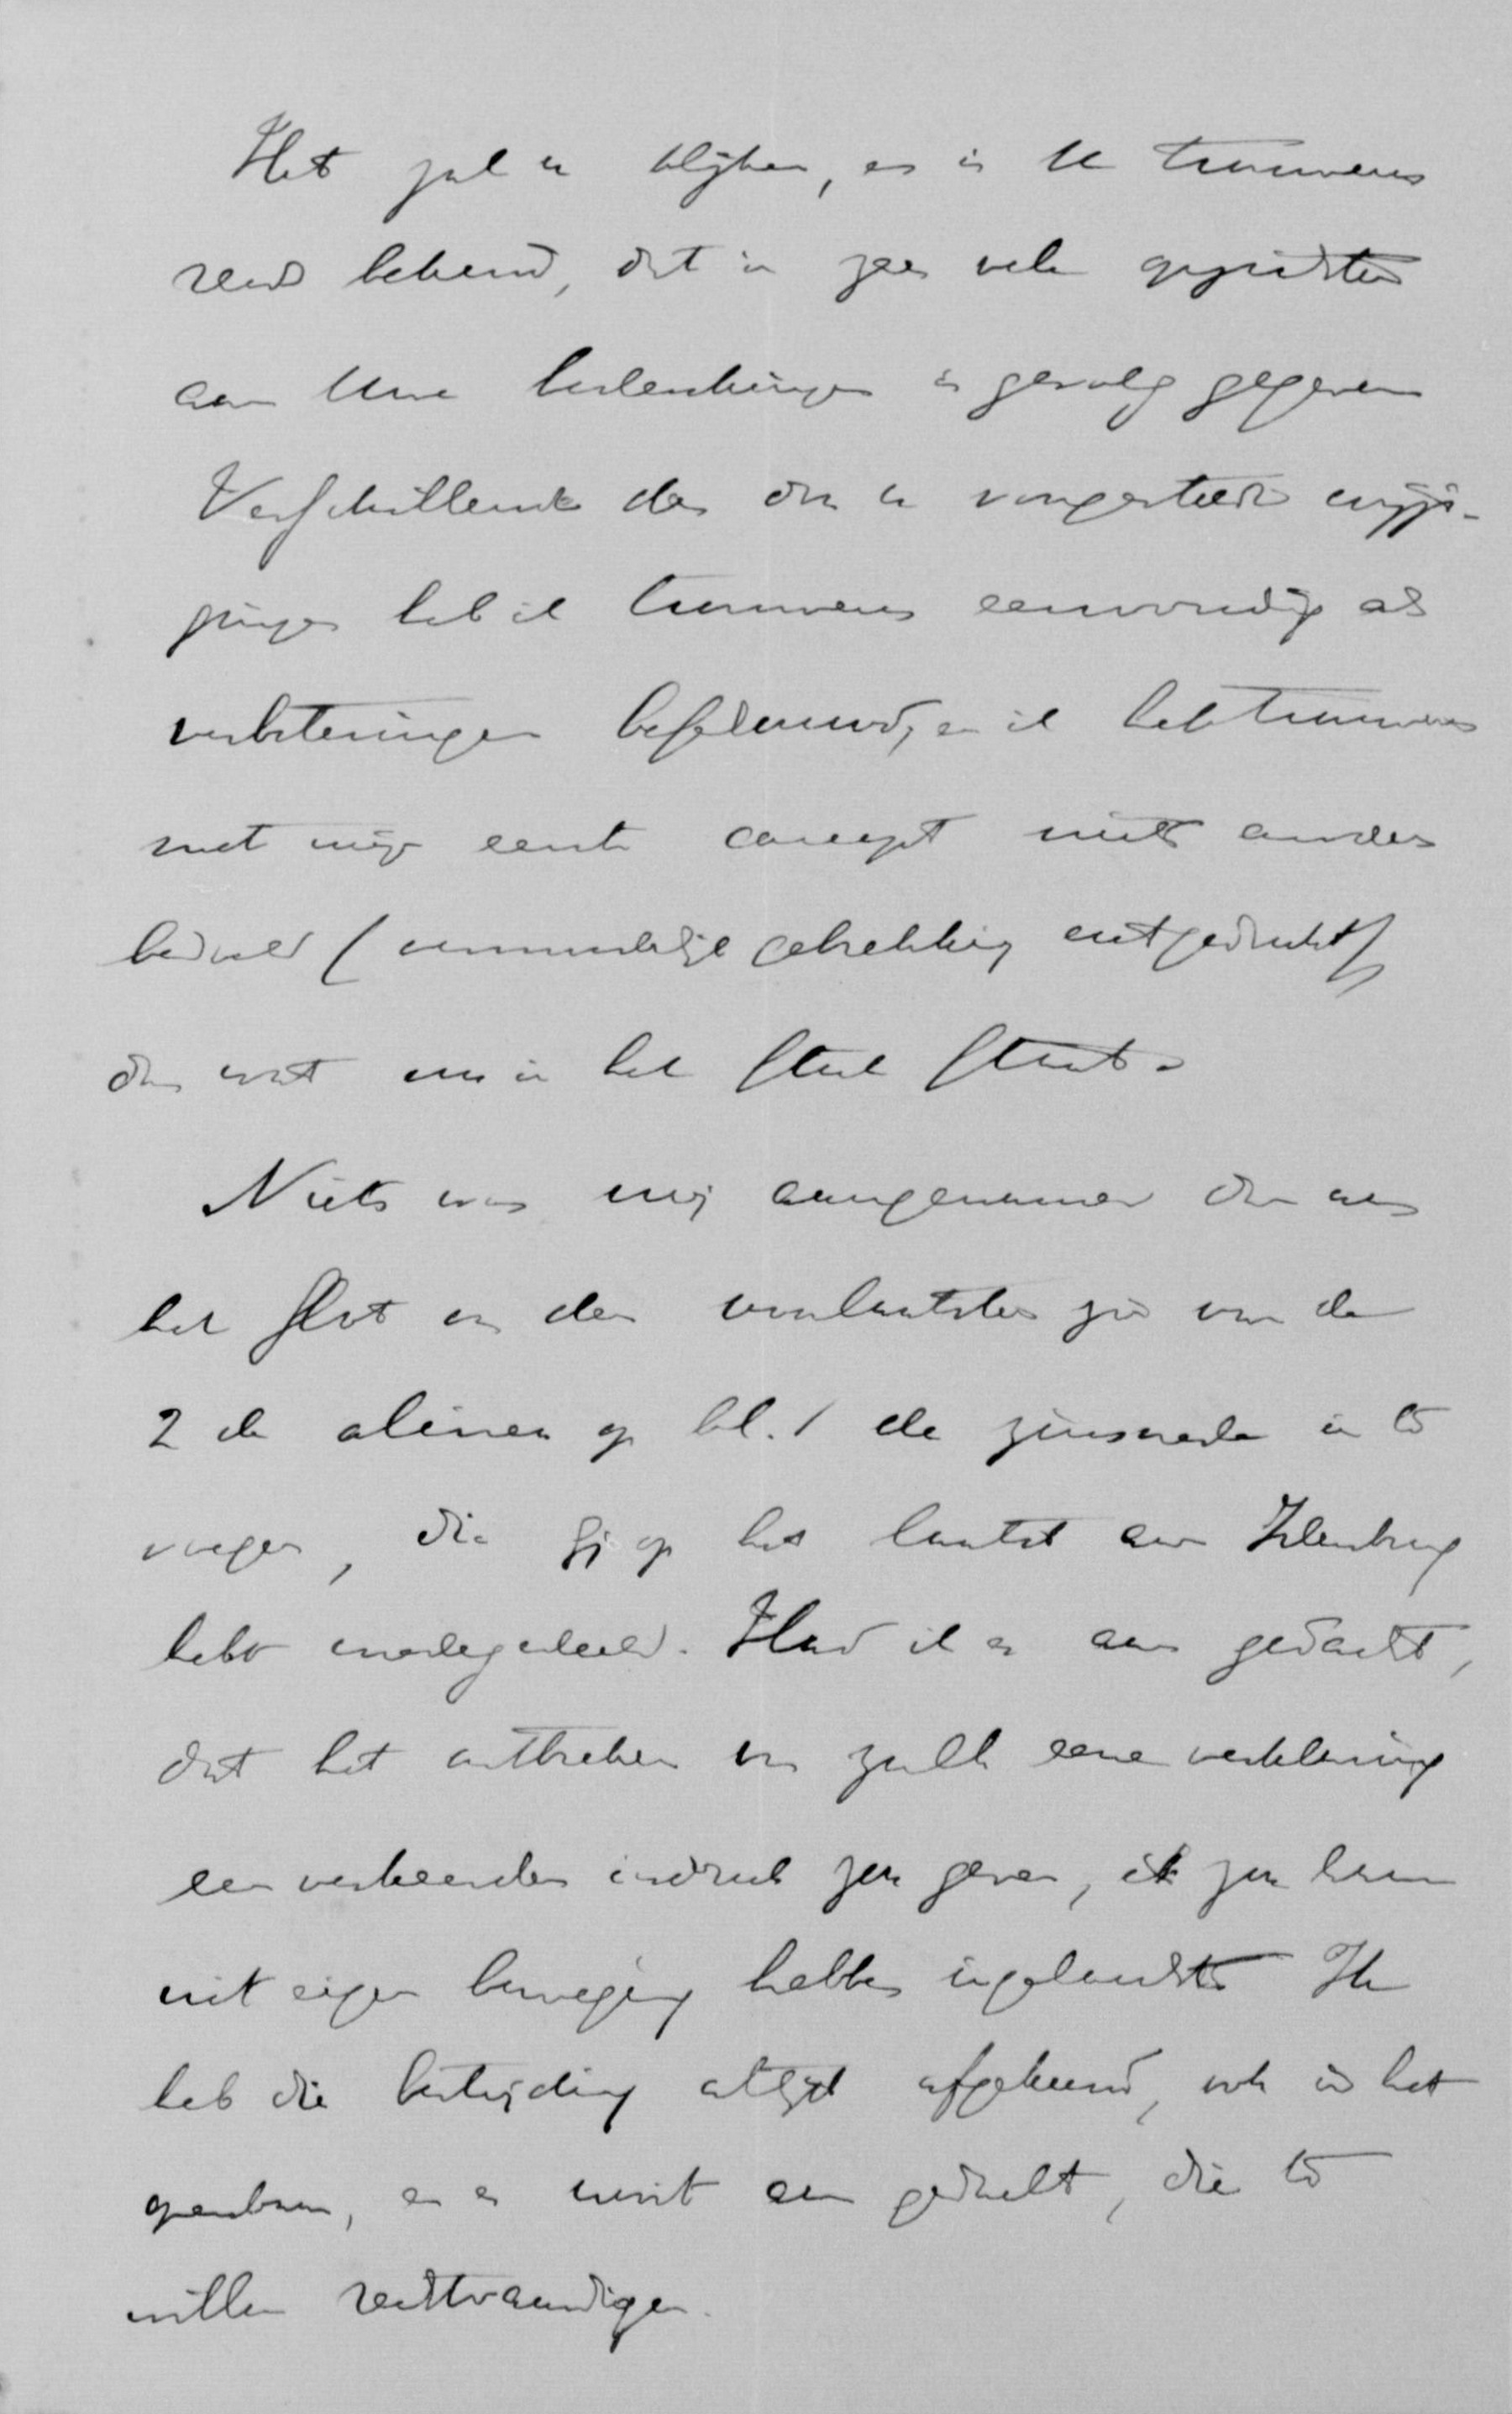 Het zal u blijken, en is U trouwens
reeds bekend, dat in zeer vele opzichten
aan Uwe bedenkingen is gevolg gegeven
Verschillende der door u voorgestelde wijzi-
gingen heb ik trouwens eenvoudig als
verbeteringen beschouwd, en ik heb trouwens
met mijn eerste concept niets anders
bedoeld (vermoedelijk gebrekkig uitgedrukt)
dan wat nu in het stuk staat.
Niets was mij aangenamer dan aan
het slot van den voorlaatsten zin van de
2de alinea op bl. 1 de zinsnede in te
voegen, die gij op het laatst aan Idenburg
hebt medegedeeld. Had ik er aan gedacht,
dat het ontbreken van zulk eene verklaring
een verkeerden indruk zou geven, ik zou haar
uit eigen beweging hebben ingelascht. Ik
heb die bestrijding altijd afgekeurd, ook in het
openbaar, en er nooit aan gedacht, die te
willen rechtvaardigen.